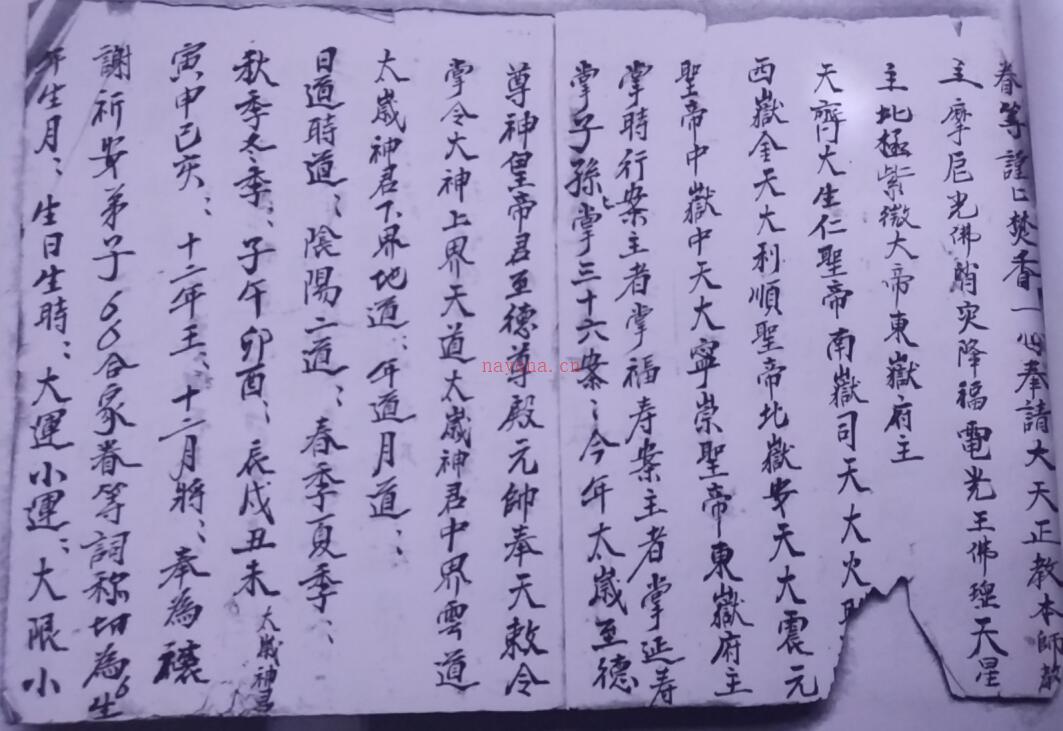 眷等謹已焚香一心奉請大天正教本師
主摩尼光佛消灾降福電光王佛璁天星
主北極紫微大帝東嶽府主
天齊大生仁聖帝南嶽司天大火
西嶽金天大利順聖帝北嶽安天大震元
聖帝中嶽中天大寧崇聖帝東嶽府主
掌時行案主者掌福寿案主者掌延寿
掌子孫掌三十六案〻今年太歲至德
尊神皇帝君至德尊殿元帥奉天敕令
掌令大神上界天道太歲神君中界雲道
太歲神君下界地道〻年道月道〻
日道時道〻陰陽二道〻春季夏季〻
秋季冬季〻子午卯酉〻辰戌丑未
太歲神君
寅申巳亥〻十二年王〻十二月將〻奉為禳
謝祈安弟子厶厶合家眷等詞称切為厶生
年生月〻生日生時〻大運小運〻大限小
nayona.cn